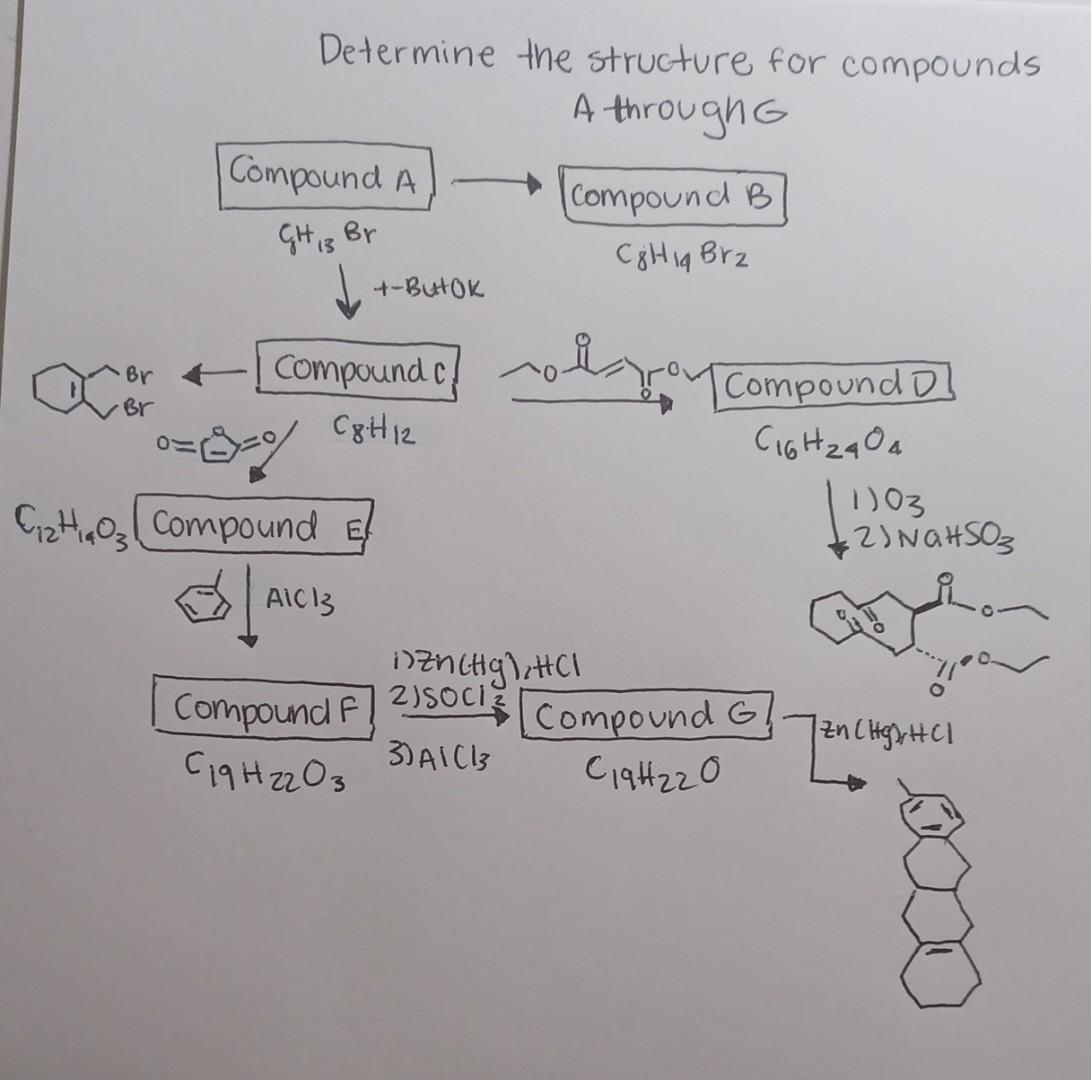 Determine the structure for compounds
A through G
Compound A
C8H13 Br
Compound B
C8H14 Br2
t-ButOK
Compound C
C8H12
Br
Br
O
O
O
O
Compound D
C16H24O4
O=
O
=O
1) O3
2) NaHSO3
C12H14O3
Compound E
AlCl3
O
O
O
O
O
O
Compound F
C19H22O3
1) Zn(Hg), HCl
2) SOCl2
3) AlCl3
Compound G
C19H22O
Zn(Hg), HCl